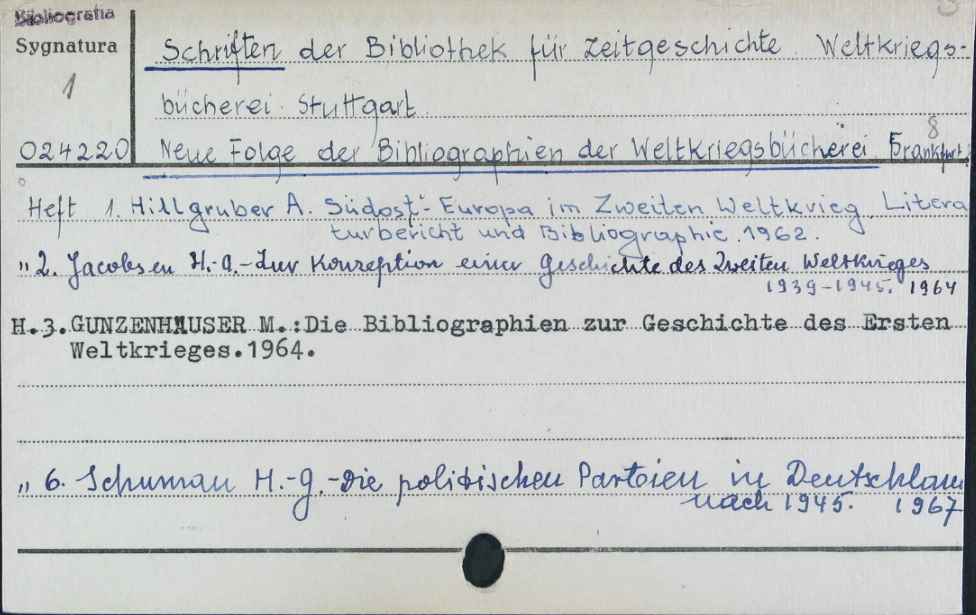 Bibliografia
Sygnatura
1
024220
Schriften der Bibliothek für Zeitgeschichte Weltkriegs-
bücherei Stuttgart
8
Neue Folge der Bibliographien der Weltkriegsbücherei Frankfurt
Heft 1. Hillgruber A. Südost-Europa im Zweiten Weltkrieg. Litera
turbericht und Bibliographie. 1962.
" 2. Jacobsen H.-A.-Zur Konzeption einer Geschichte des Zweiten Weltkrieges
1939-1945. 1964
H.3. GUNZENHÄUSER M.:Die Bibliographien zur Geschichte des Ersten
Weltkrieges.1964.
" 6. Schuman H.-G.-Die politischen Partoien in Deutschlan
nach 1945. 1967